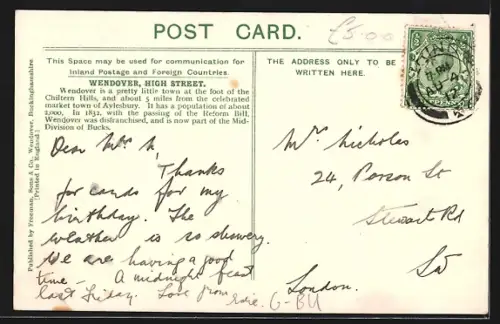 POST CARD.
£5.00
This Space may be used for communication for
Inland Postage and Foreign Countries.
THE ADDRESS ONLY TO BE
WRITTEN HERE.
WENDOVER, HIGH STREET.
Wendover is a pretty little town at the foot of the
Chiltern Hills, and about 5 miles from the celebrated
market town of Aylesbury. It has a population of about
2,000. In 1832, with the passing of the Reform Bill,
Wendover was disfranchised, and is now part of the Mid-
Division of Bucks.
Published by Freeman, Sons & Co., Wendover, Buckinghamshire.
[Printed in England.]
Dear Mrs N,
Thanks
for cards for my
birthday. The
weather is so showery.
We are having a good
time - A midnight feast
last Friday. Love from Edie. G-BU
Mrs Nicholas
24, Porson St
Stewart Rd
London. SW